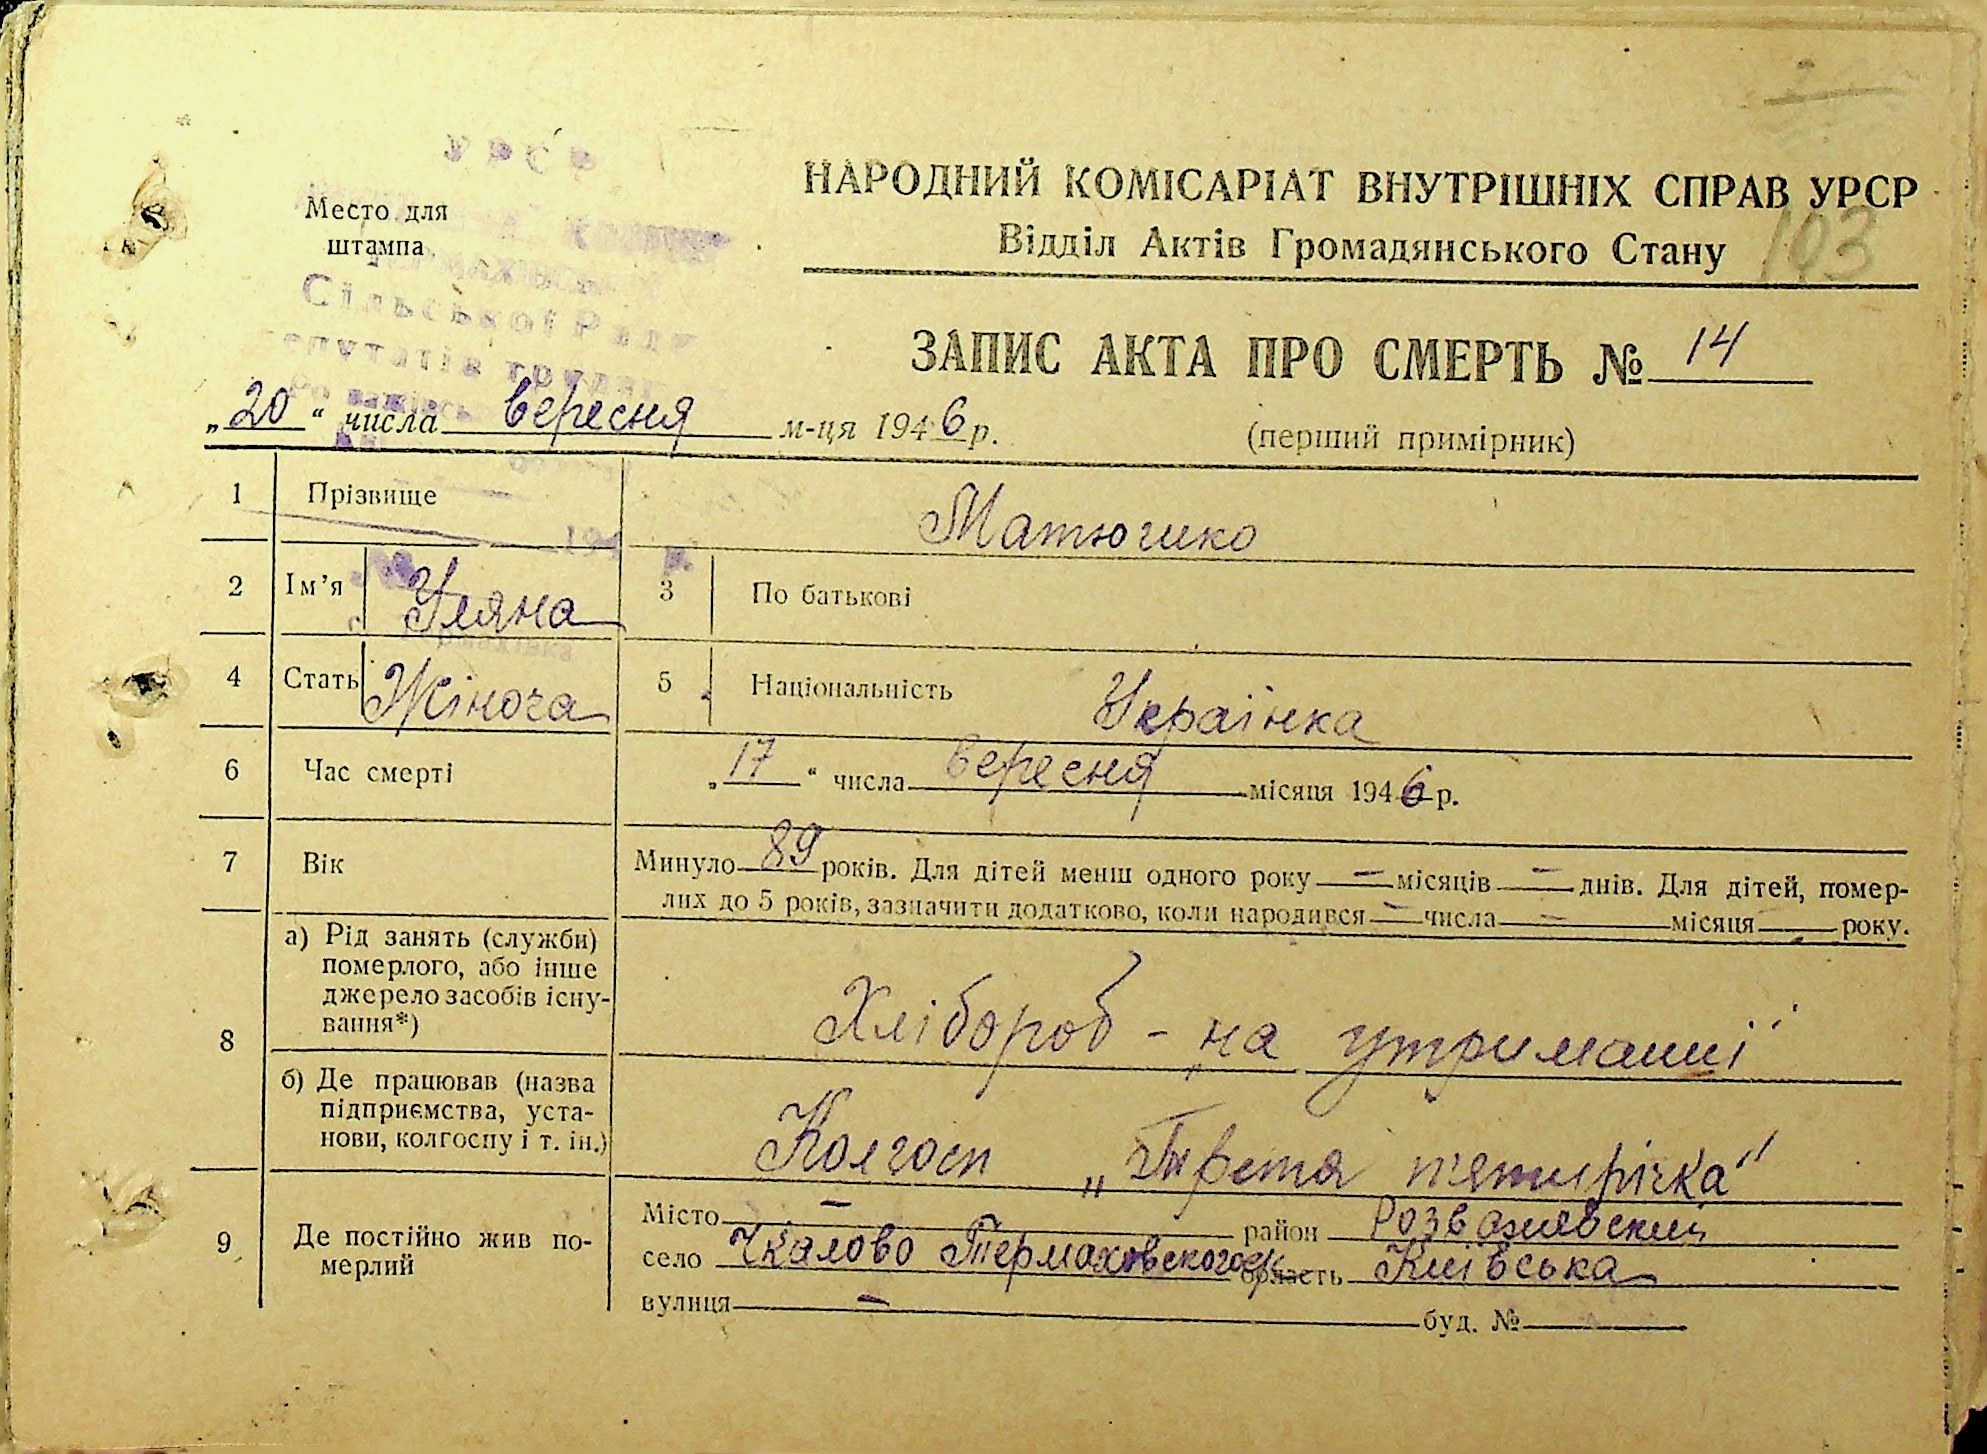 Место для
штампа
Сільської Ради
НАРОДНИЙ КОМІСАРІАТ ВНУТРІШНІХ СПРАВ УРСР
Відділ Актів Громадянського Стану
103
ЗАПИС АКТА ПРО СМЕРТЬ № 14
„20“ числа вересня м-ця 1946 р.
(перший примірник)
1 Прізвище Матюшко
2 Ім’я Уляна 3 По батькові
4 Стать Жіноча 5 Національність Українка
6 Час смерті „17“ числа вересня місяця 1946 р.
7 Вік Минуло 89 років. Для дітей менш одного року — місяців — днів. Для дітей, помер-
лих до 5 років, зазначити додатково, коли народився — числа — місяця — року.
8 а) Рід занять (служби)
померлого, або інше
джерело засобів існу-
вання*)
Хлібороб - на утриманні
б) Де працював (назва
підприємства, уста-
нови, колгоспу і т. ін.)
Колгосп „Третя п'ятирічка"
9 Де постійно жив по-
мерлий
Місто — район Розважевский
село Чкалово Термаховского область Київська
вулиця — буд. №